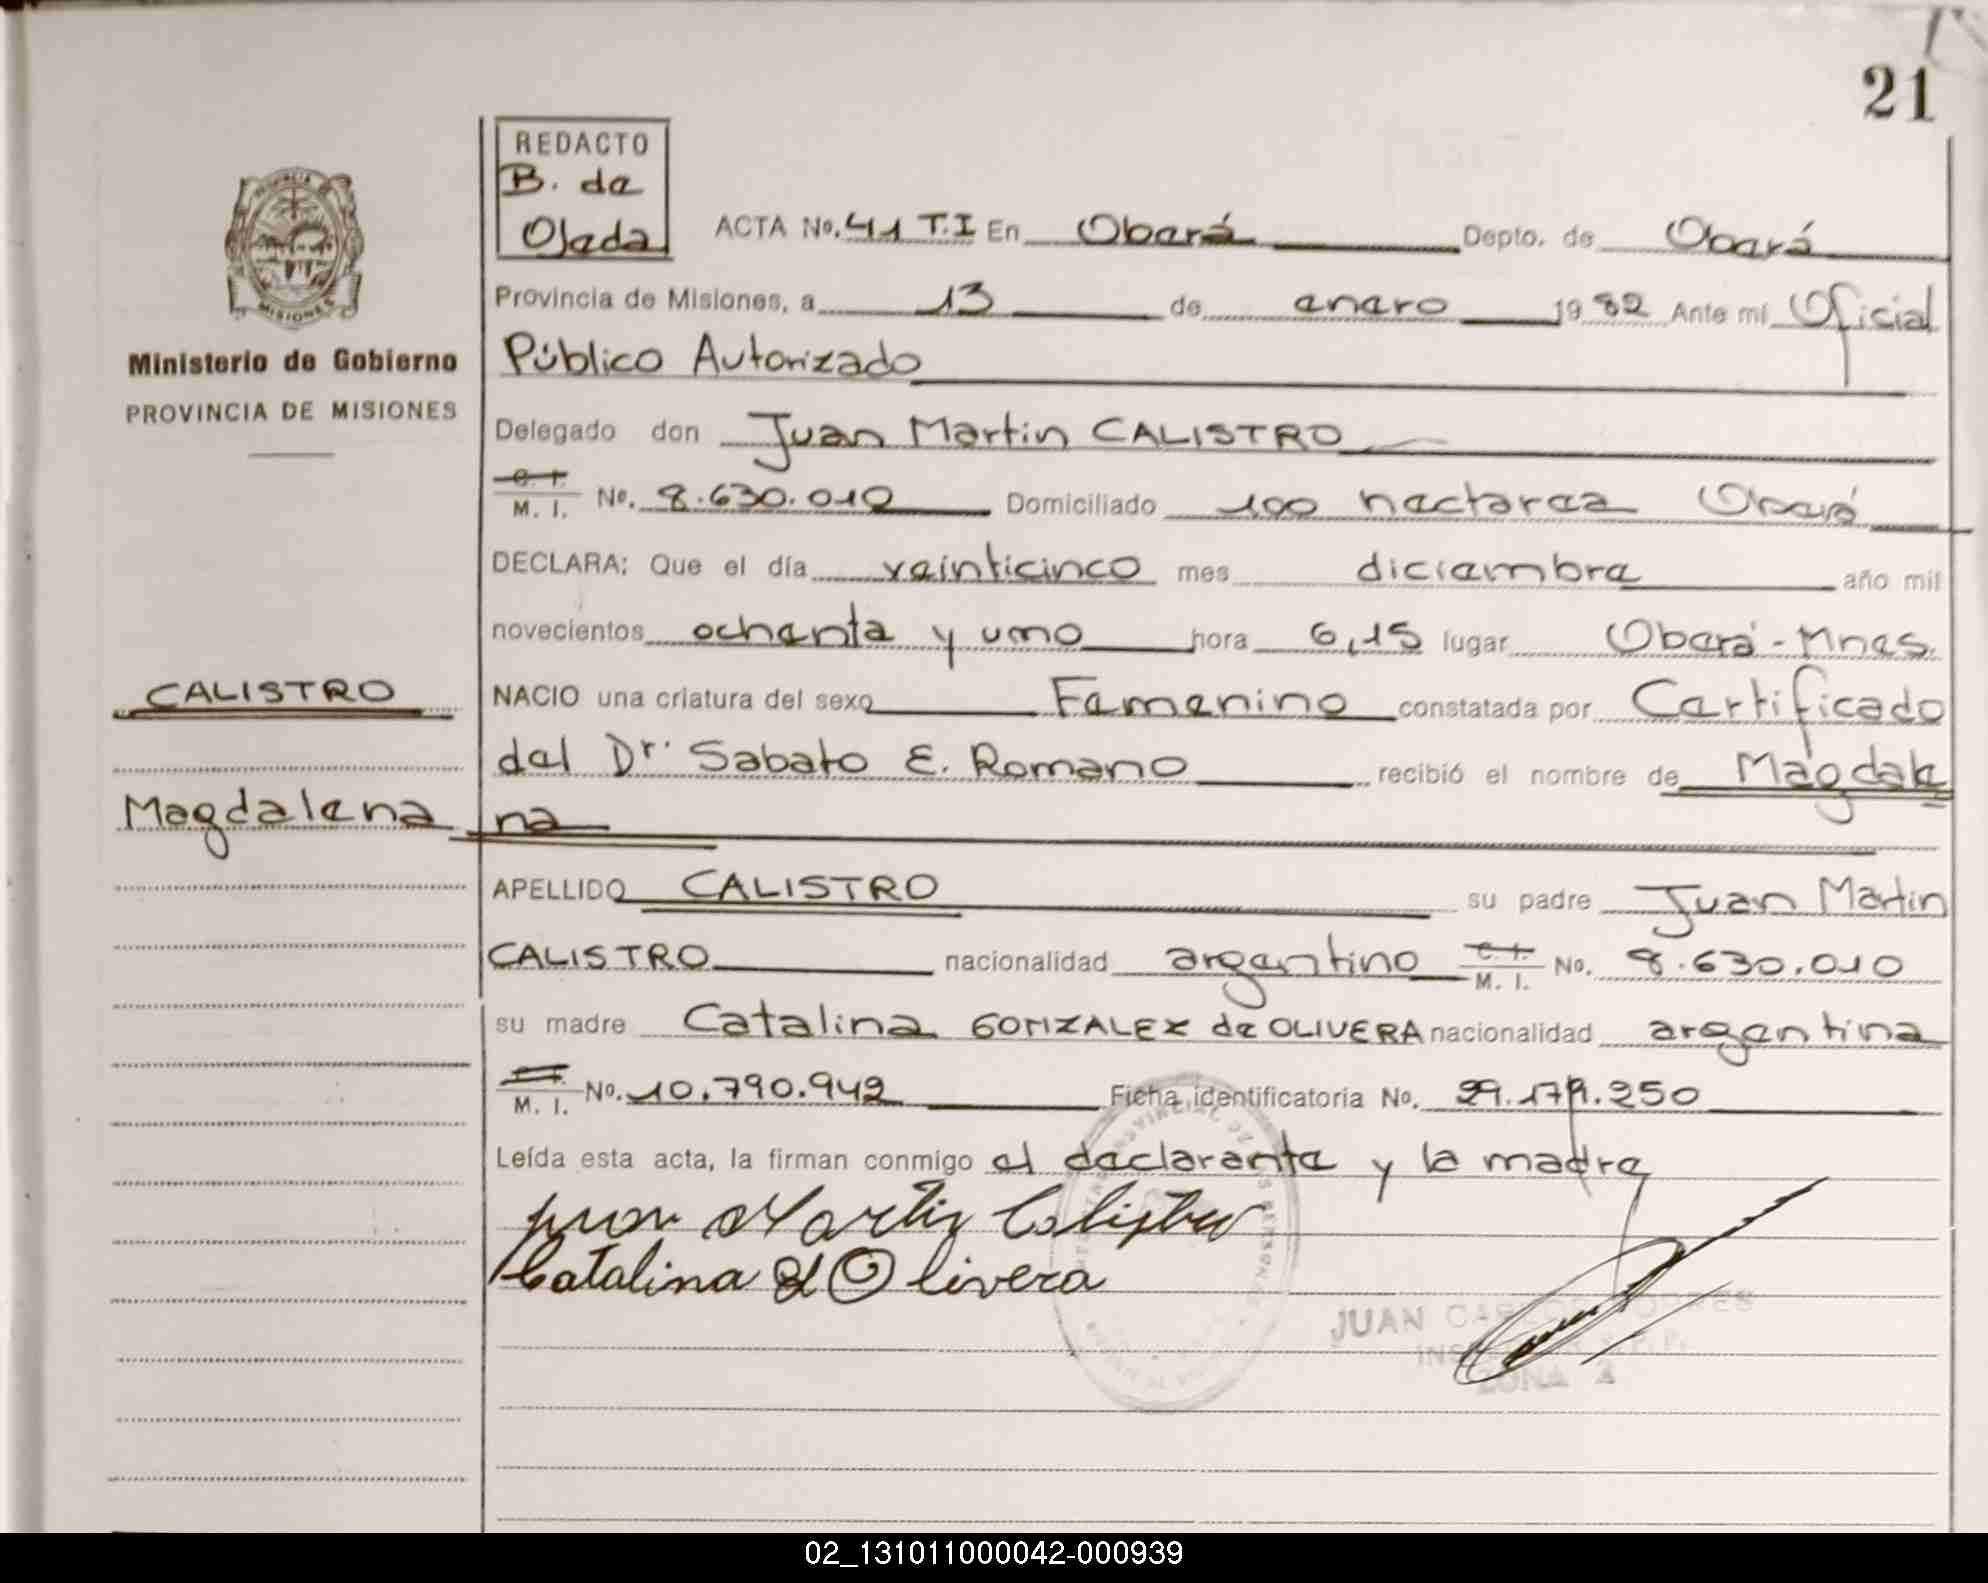 21
REDACTO
B. de
Ojeda
ACTA No. 41 T.I En Oberá Depto. de Oberá
Provincia de Misiones, a 13 de enero 1982 Ante mí Oficial
Público Autorizado
Delegado don Juan Martin CALISTRO
C. I. M. I. No. 8.630.010 Domiciliado 100 hectarea Oberá
DECLARA: Que el día veinticinco mes diciembre año mil
novecientos ochenta y uno hora 6,15 lugar Oberá - Mnes.
NACIO una criatura del sexo Femenino constatada por Certificado
del Dr. Sabato E. Romano recibió el nombre de Magdale
na
APELLIDO CALISTRO su padre Juan Martin
CALISTRO nacionalidad argentino C. I. M. I. No. 8.630.010
su madre Catalina GONZALEZ de OLIVERA nacionalidad argentina
M. I. No. 10.790.942 Ficha identificatoria No. 29.179.250
Leída esta acta, la firman conmigo el declarante y la madre
Juan Martin Calistro
Catalina d Olivera
JUAN CARLOS
ZONA
PROVINCIA
MISIONES
Ministerio de Gobierno
PROVINCIA DE MISIONES
CALISTRO
Magdalena
02_131011000042-000939